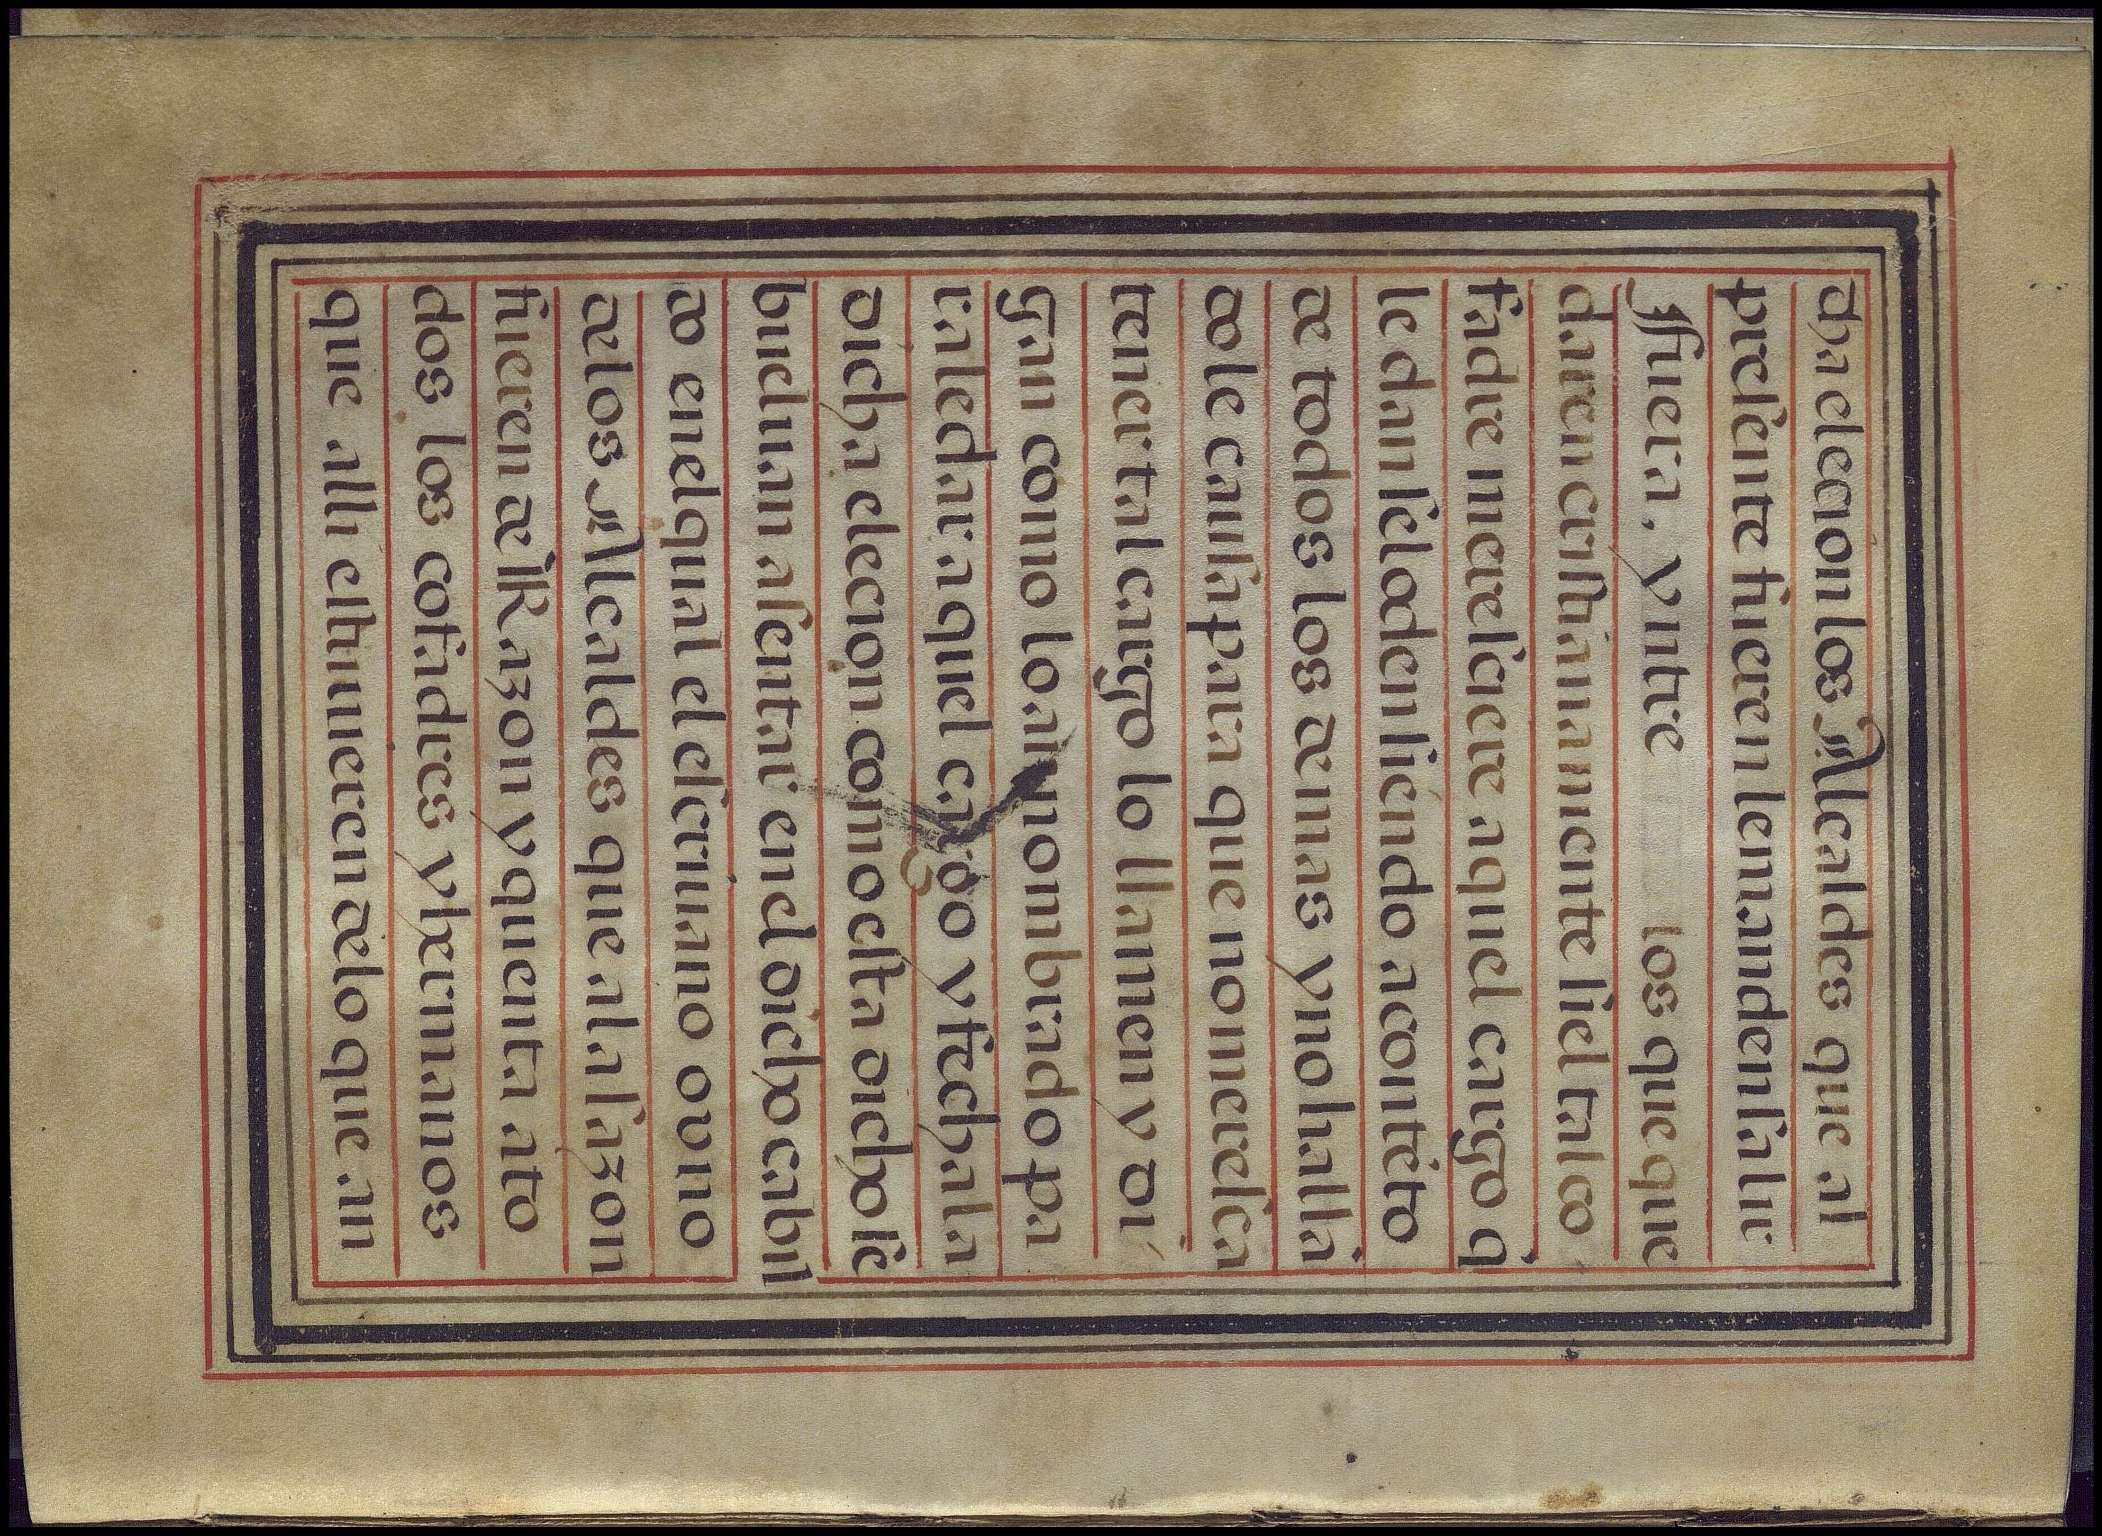 cha elecion los Alcaldes que al
presente fueren lemanden salir
fuera, y ntre los que que
daren cristianamente si el tal co
fadre meresciere aquel cargo q
le dan selo den siendo a contẽto
de todos los demas y no halla
dole causa para que no meresca
tener tal cargo lo llamen y di
gan como lo an nombrado pa
rale dar aquel cargo y fecha la
dicha elecion como esta dicho se
buelvan asentar en el dicho cabil
do en el qual el escrivano o uno
de los Alcaldes que a la sazon
fueren de Razon y quenta a to
dos los cofadres y hermanos
que alli estuvieren de lo que an